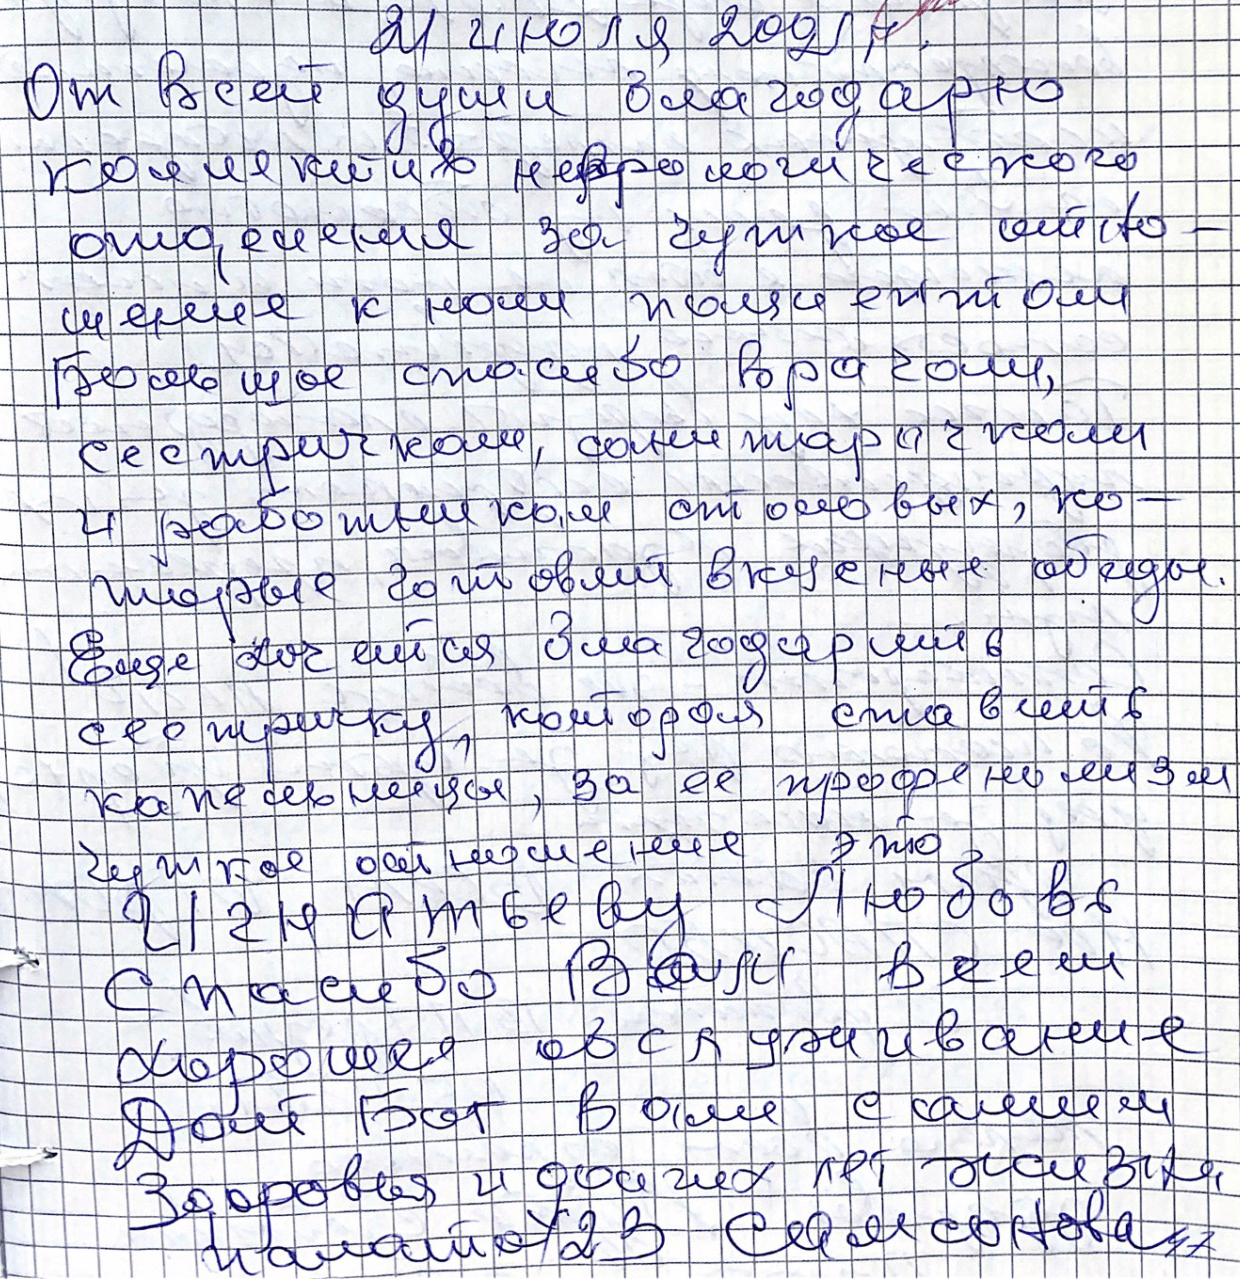 21 июля 2021 г.
От всей души благодарю
коллектив неврологического
отделения за чуткое отно-
шение к нам пациентам
Большое спасибо врачам,
сестричкам, санитарочкам
и работникам столовых, ко-
торые готовят вкусные обеды.
Еще хочется благодарить
сестричку, которая ставить
капельницы, за ее профенолизм
чуткое отношение это
Игнатьеву Любовь
Спасибо Вам всем
хорошее обслуживание
Дай Бог вам самим
Здоровья и долгих лет жизни
палата 23 Самсонова